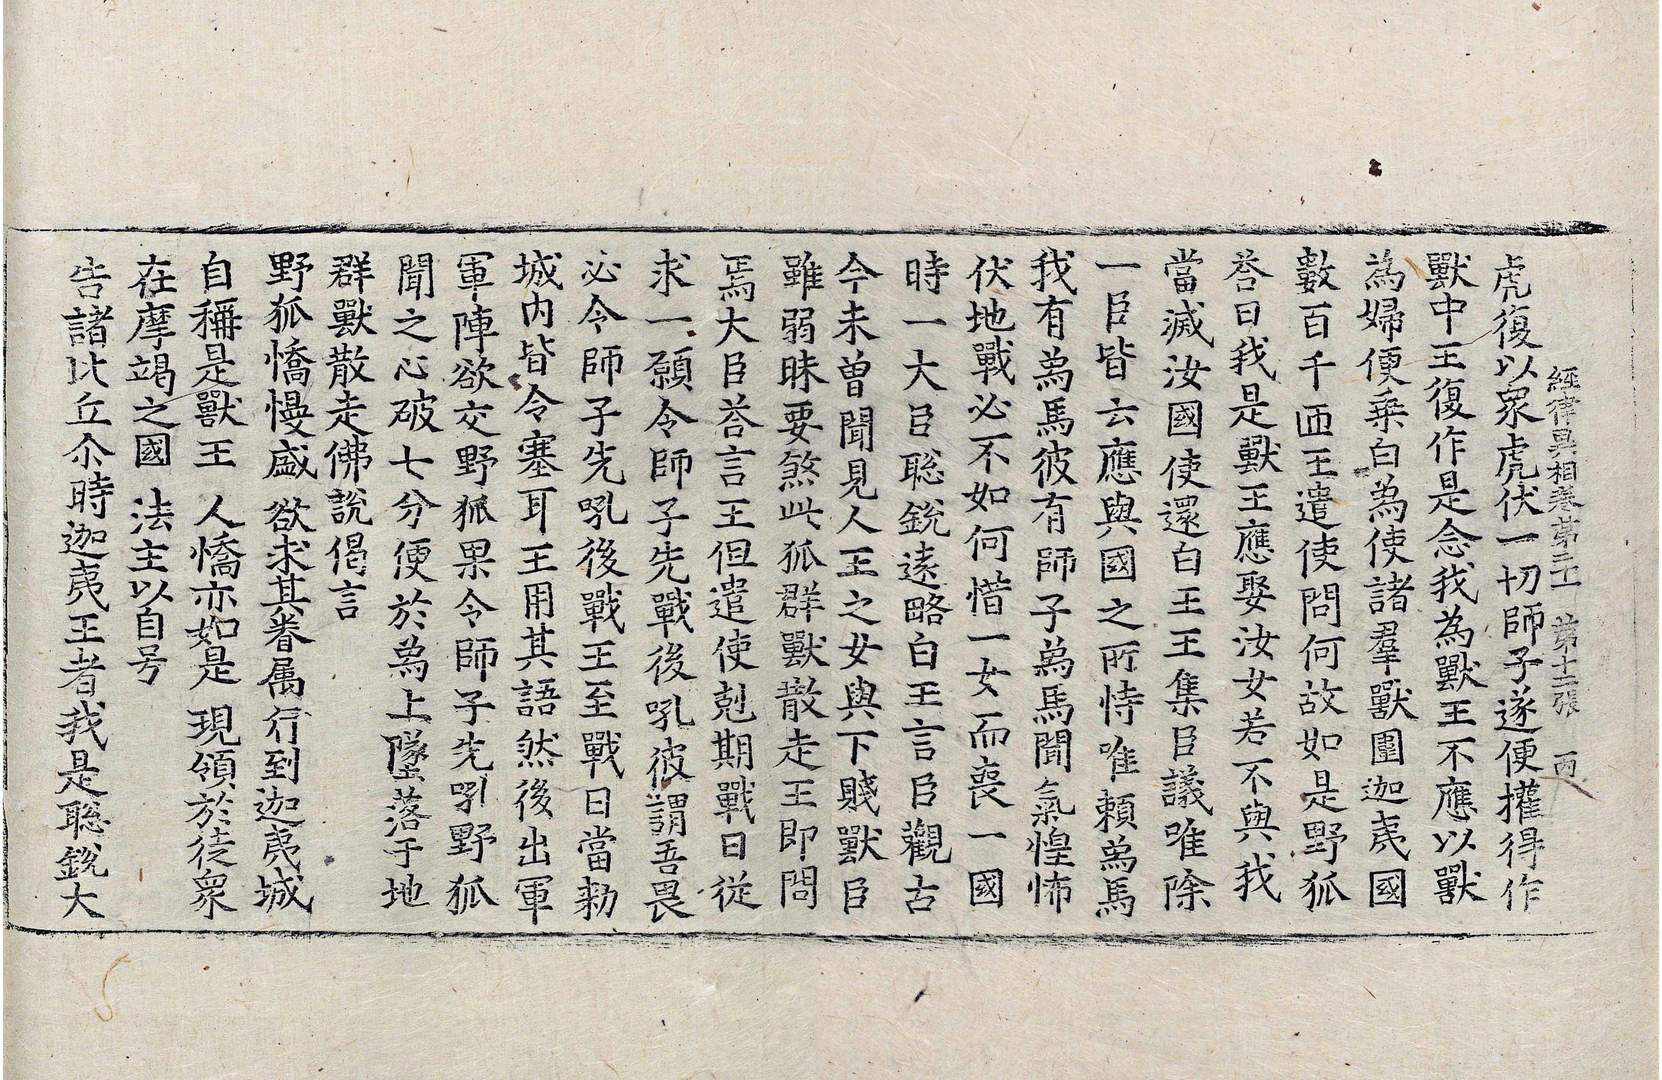 經律異相卷第二十一 第十二張 丙
虎復以衆虎伏一切師子遂便擢得作
獸中王復作是念我為獸王不應以獸
為婦便乗白為使諸羣獸圍迦夷國
數百千匝王遣使問何故如是野狐
荅曰我是獸王應娶汝女若不與我
當滅汝國使還白王王集臣議唯除
一臣皆云應與國之所恃唯賴為馬
我有為馬彼有師子為馬聞氣惶怖
伏地戰必不如何惜一女而喪一國
時一大臣聡銳遠略白王言臣觀古
今未曾聞見人王之女與下賤獸臣
雖弱昧要煞此狐群獸散走王即問
焉大臣荅言王但遣使剋期戰日從
求一願令師子先戰後吼彼謂吾畏
必令師子先吼後戰王至戰日當勑
城内皆令塞耳王用其語然後出軍
軍陣欲交野狐果令師子先吼野狐
聞之心破七分便於為上墜落于地
群獸散走佛說偈言
野狐憍慢盛 欲求其眷属 行到迦夷城
自稱是獸王 人憍亦如是 現領於徒衆
在摩竭之國 法主以自号
告諸比丘尒時迦夷王者我是聡銳大